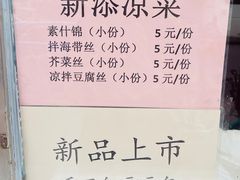 新添凉菜
素什锦（小份） 5元/份
拌海带丝（小份） 5元/份
芥菜丝（小份） 5元/份
凉拌豆腐丝（小份） 5元/份
新品上市